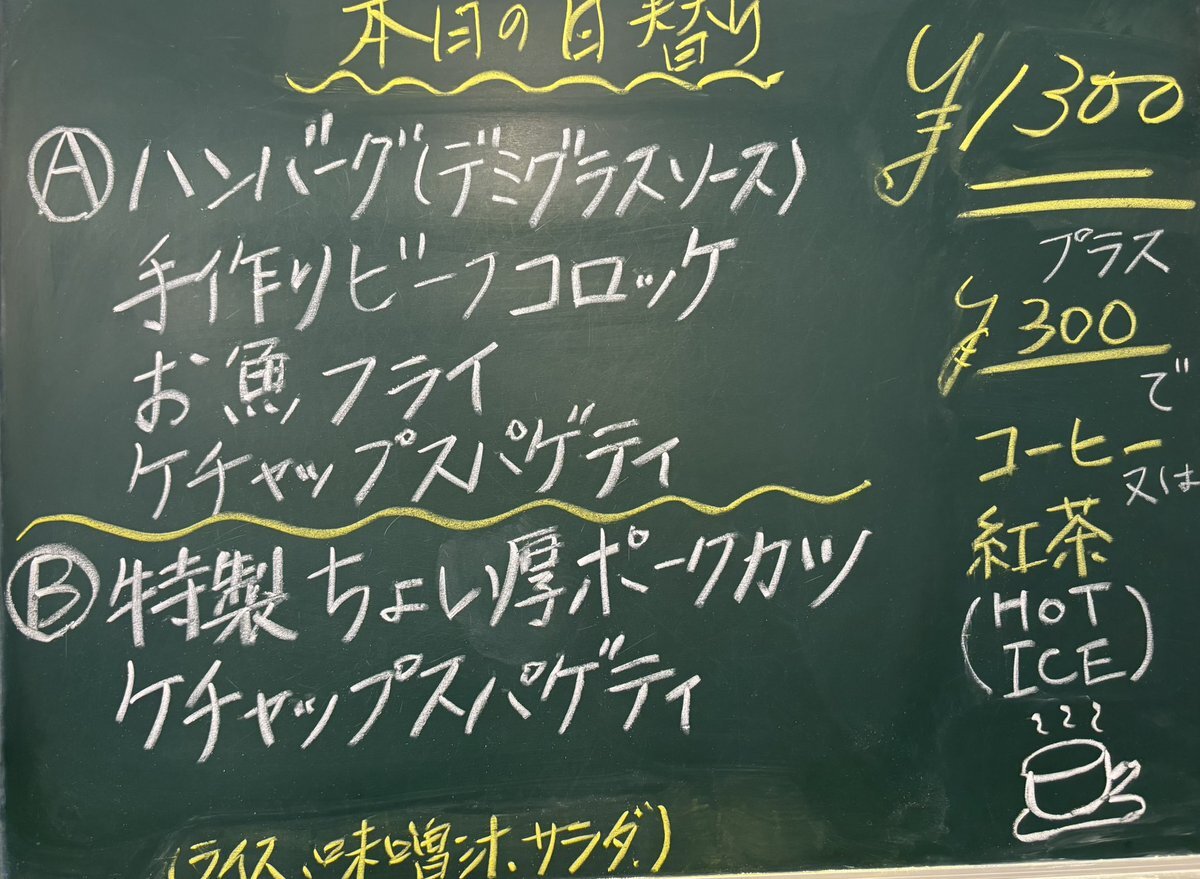 本日の日替り
Ⓐハンバーグ(デミグラスソース)
手作りビーフコロッケ
お魚フライ
ケチャップスパゲティ
Ⓑ特製ちょい厚ポークカツ
ケチャップスパゲティ
(ライス、味噌汁、サラダ)
¥1300
プラス
¥300
で
コーヒー
又は
紅茶
(HOT
ICE)